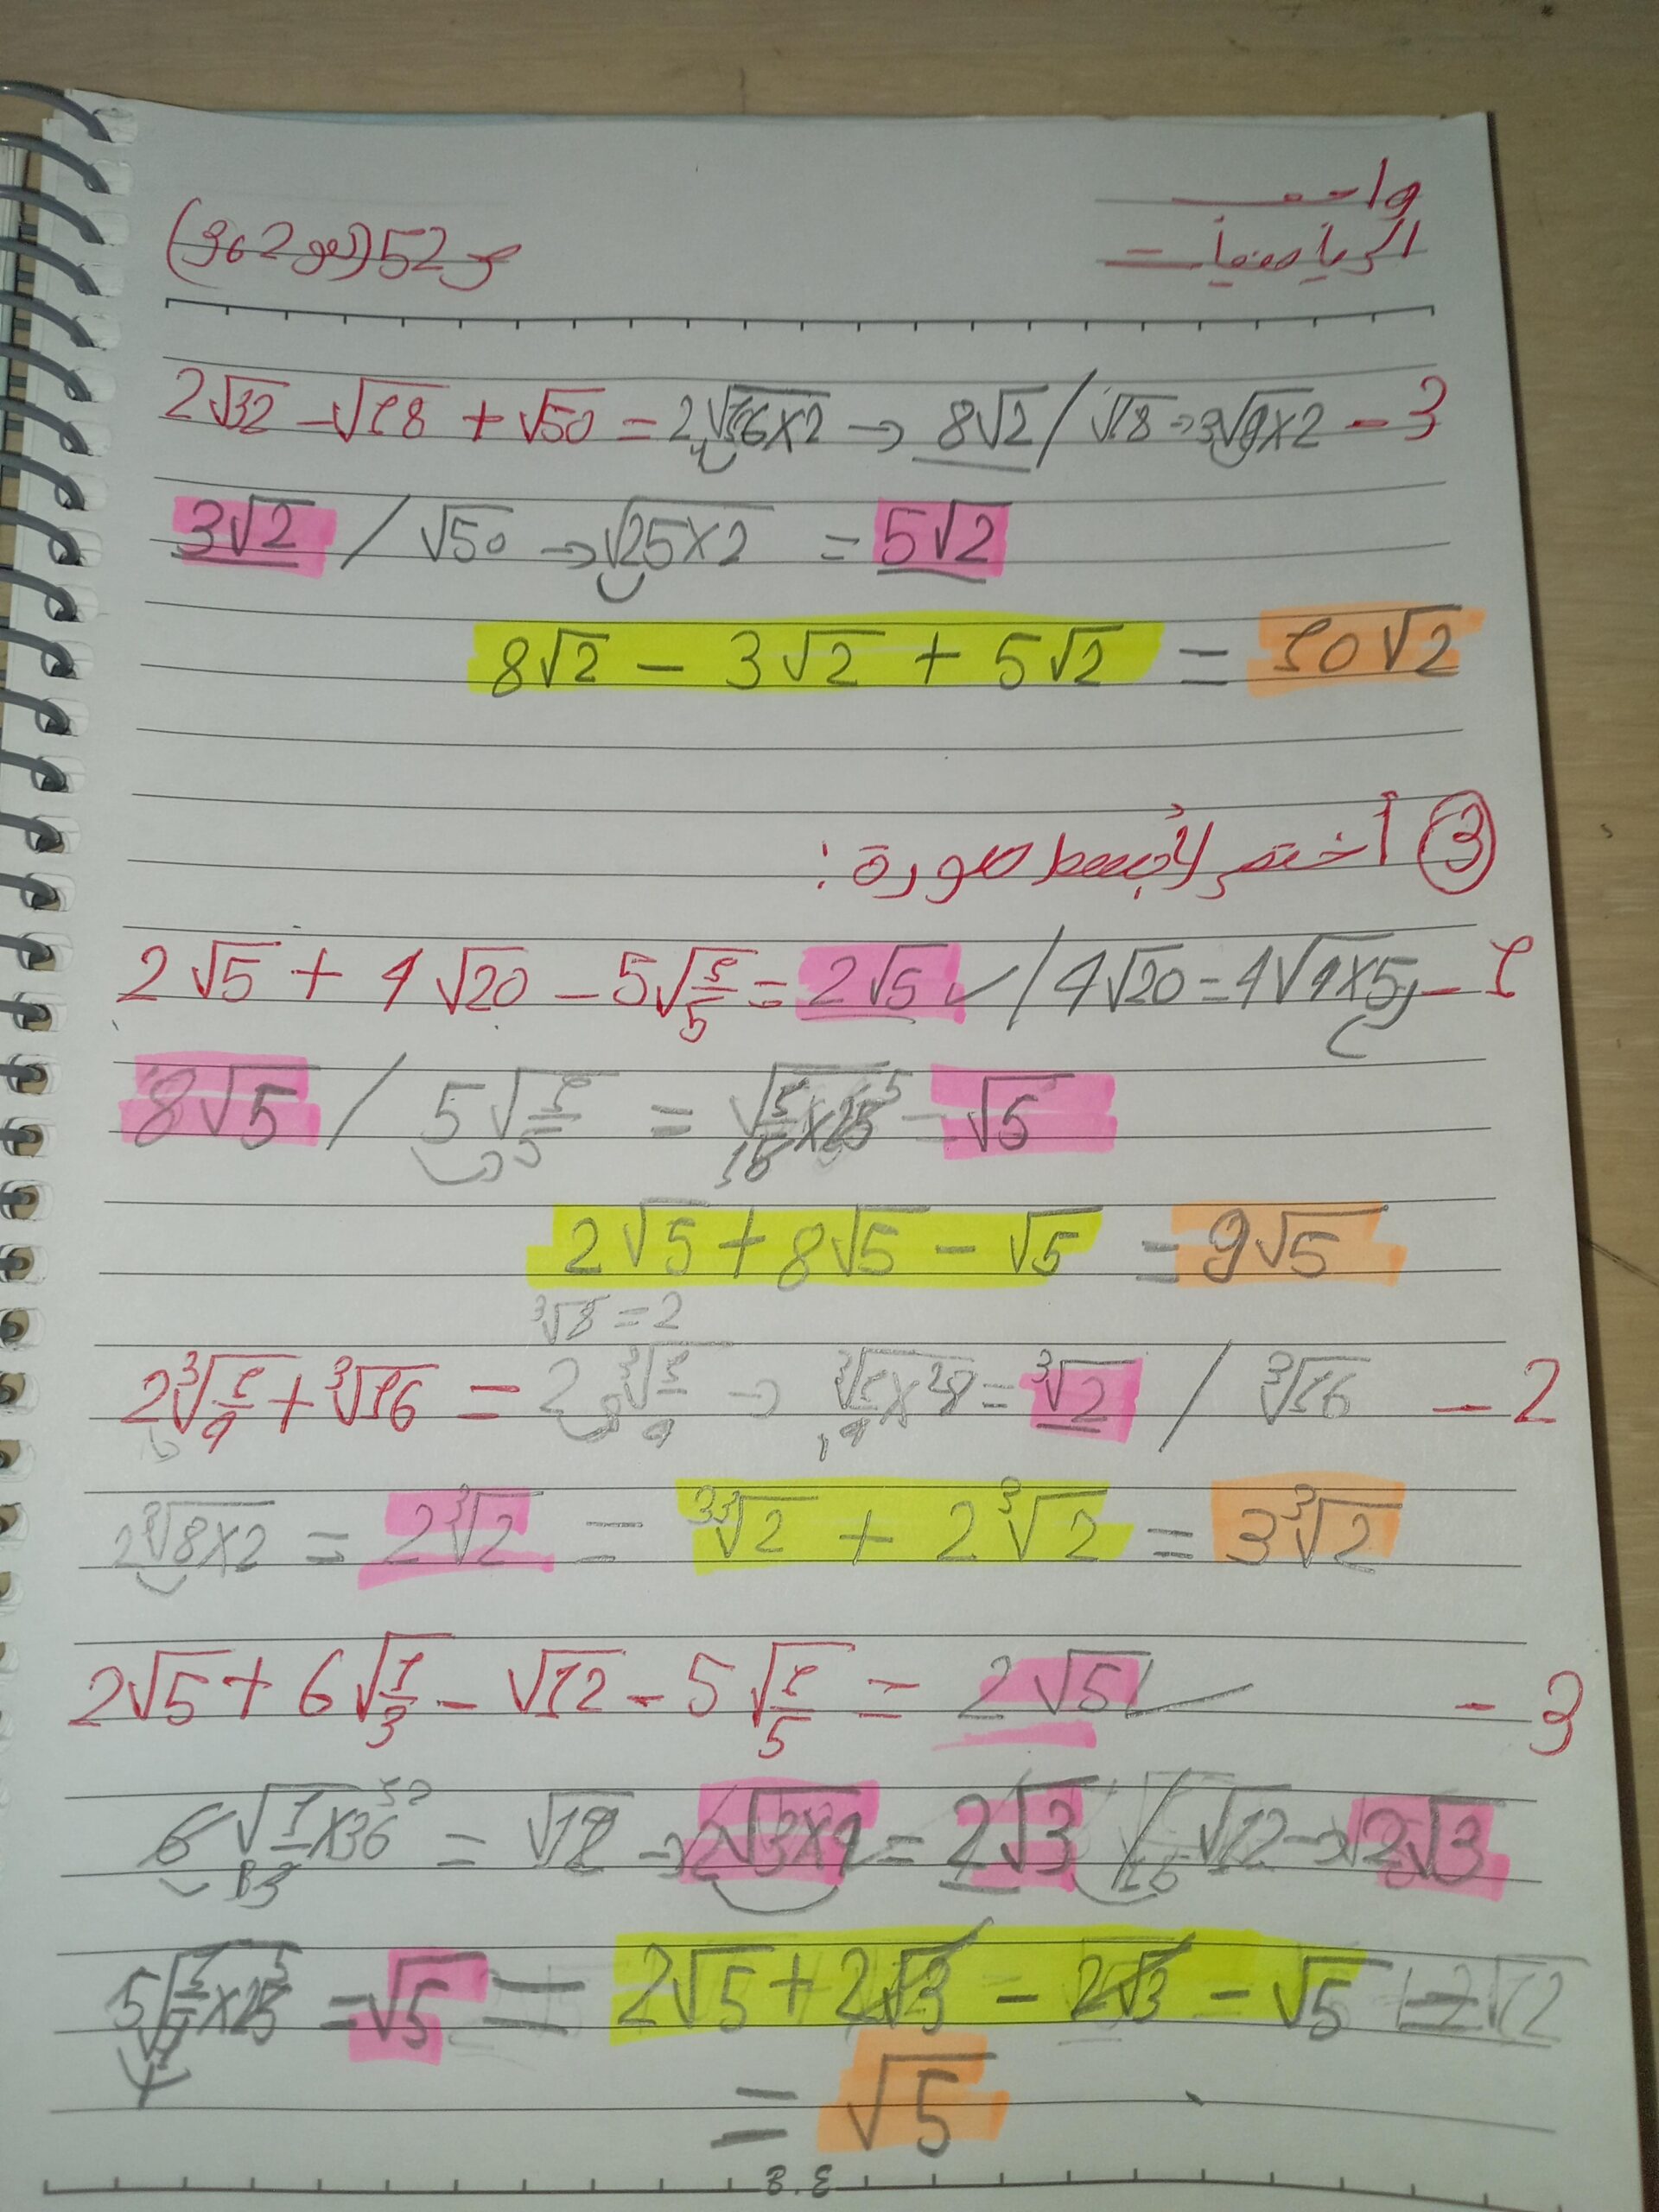 واجب
الرياضيات
ص52 (س2 و3)
2√32 − √18 + √50 = 2√16×2 → 8√2 / √18 → 3√9×2 - 3
3√2 / √50 → √25×2 = 5√2
8√2 − 3√2 + 5√2 = 10√2
③ أختصر لأبسط صورة :
2√5 + 4√20 − 5√1/5 = 2√5 ✓ / 4√20 = 4√4×5 - 1
8√5 / 5√1/5 = √1/5×25 = √5
2√5 + 8√5 − √5 = 9√5
∛8 = 2
2∛1/4 + ∛16 = 2∛1/4 → ∛1/4×8 = ∛2 / ∛16 - 2
2∛8×2 = 2∛2 = ∛2 + 2∛2 = 3∛2
2√5 + 6√1/3 − √12 − 5√1/5 = 2√5 ✓ - 3
6√1/3×36 = √12 → 2√3×4 = 2√3 / √12 → 2√3
5√1/5×25 = √5 = 2√5 + 2√3 − 2√3 − √5
= √5